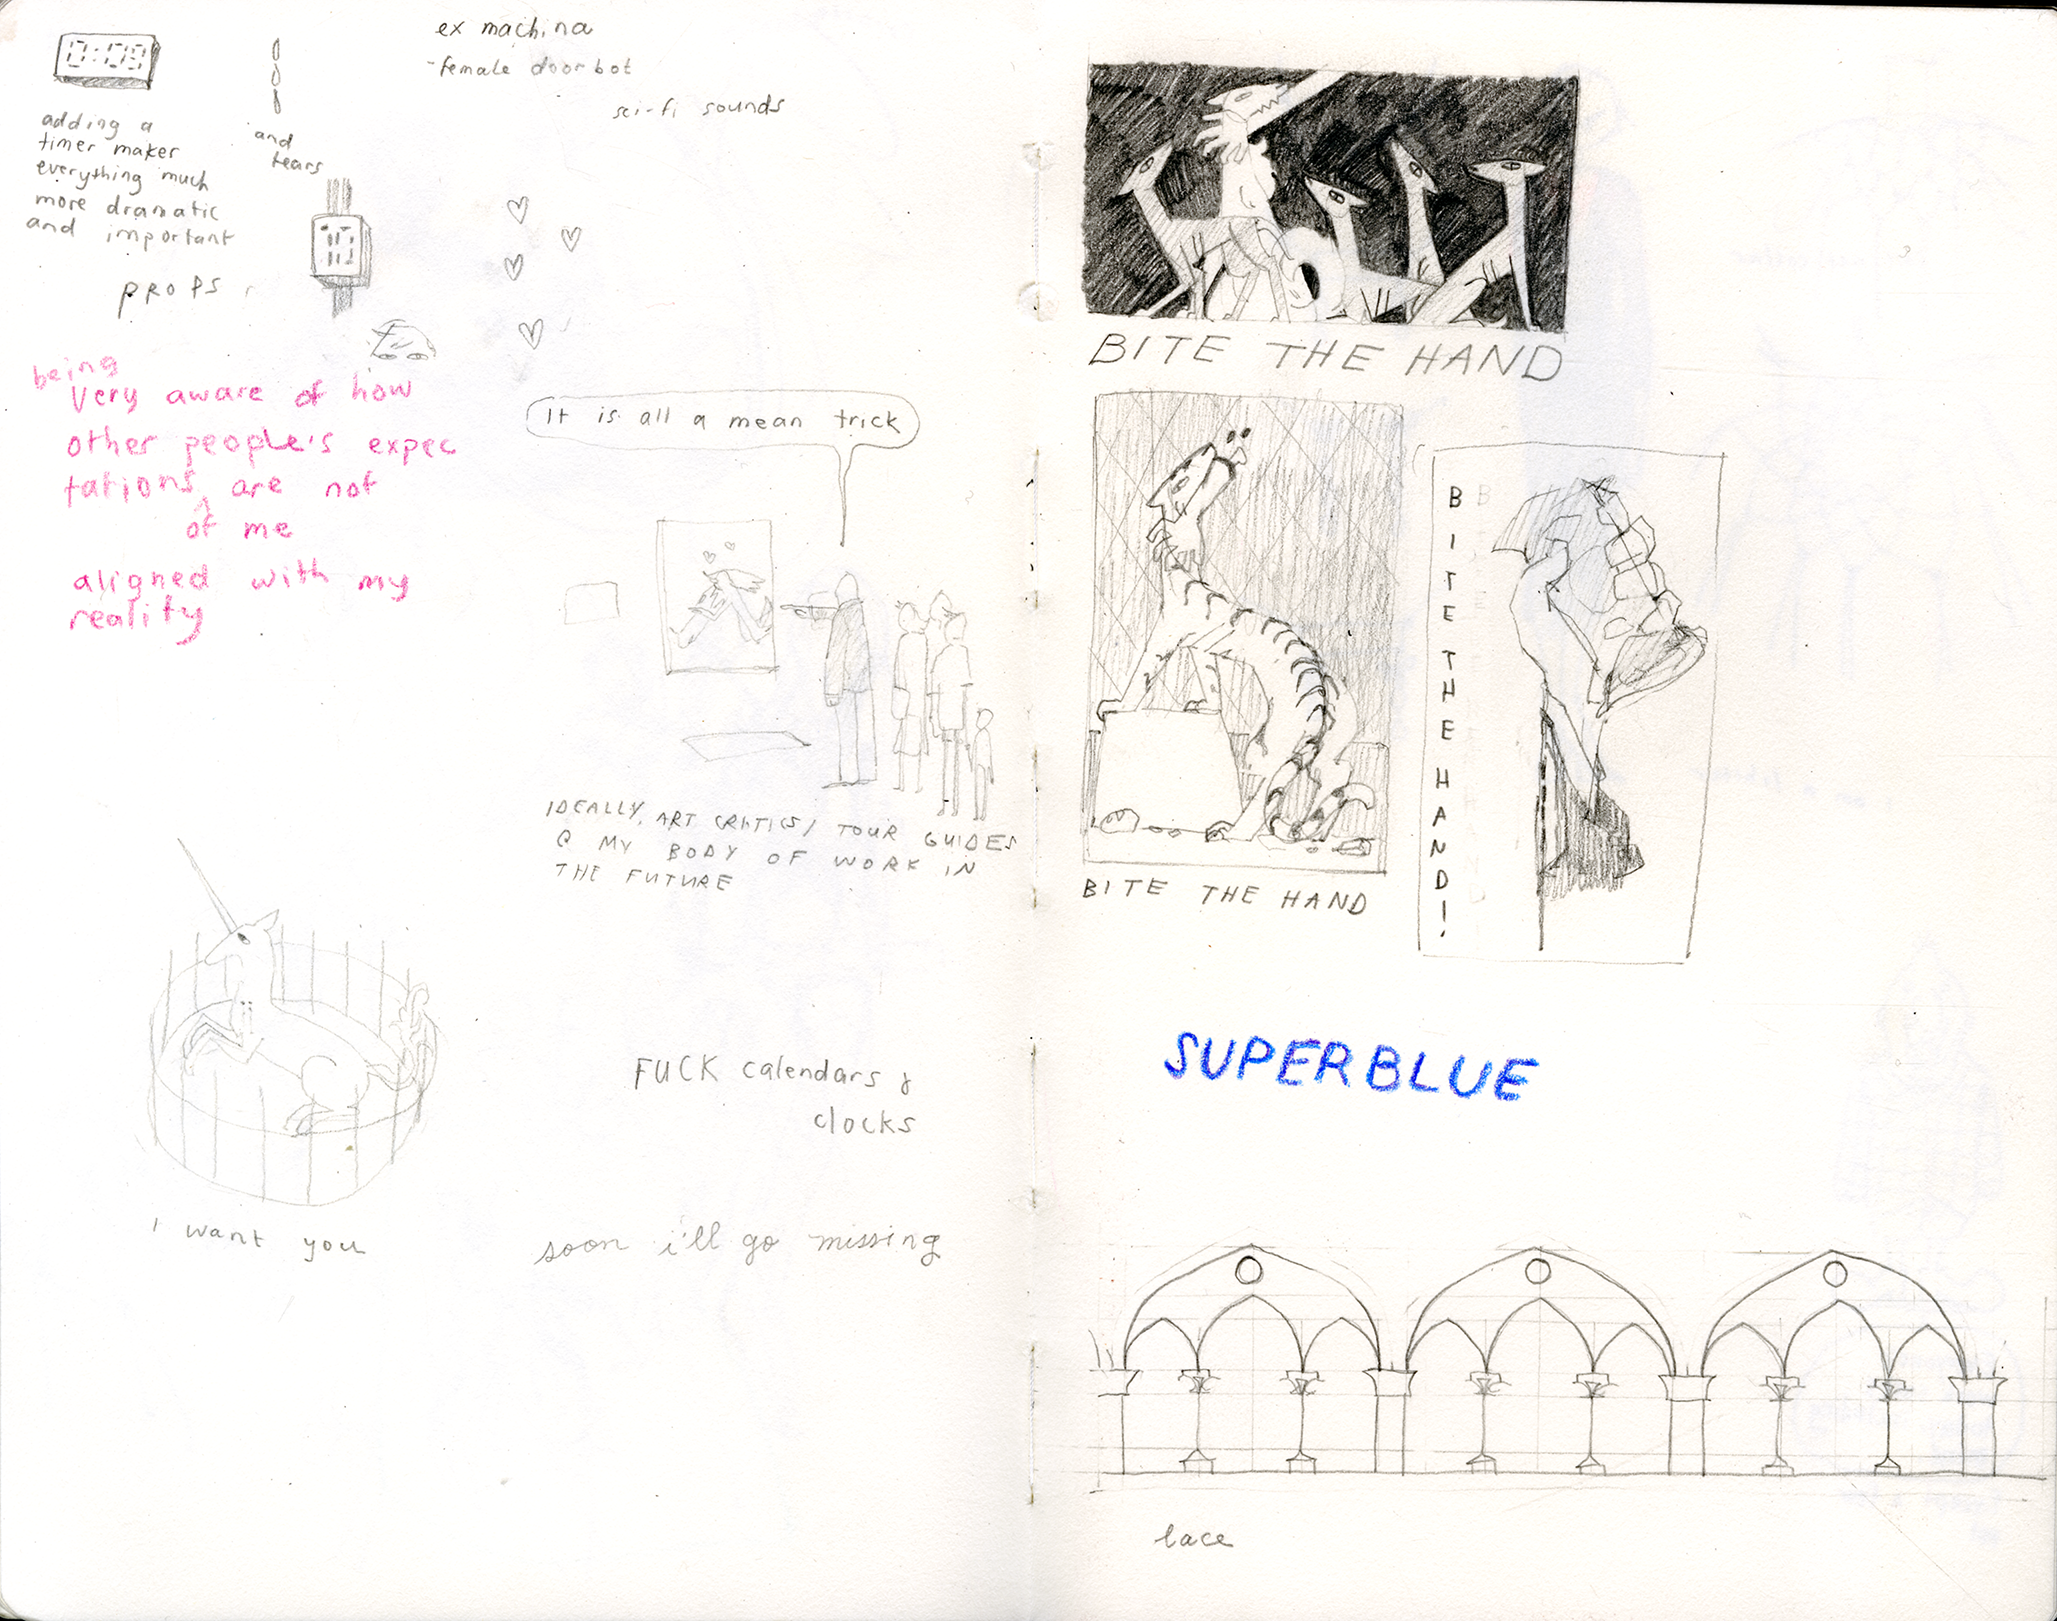 0:09
adding a
timer makes
everything much
more dramatic
and important
and
tears
PROPS
ex machina
-female doorbot
sci-fi sounds
being
very aware of how
other people's expec
tations ^ are not
of me
aligned with my
reality
It is all a mean trick
IDEALLY, ART CRITICS/ TOUR GUIDES
@ MY BODY OF WORK IN
THE FUTURE
I want you
FUCK calendars &
clocks
soon i'll go missing
BITE THE HAND
BITE THE HAND
BITE THE HAND!
SUPERBLUE
lace